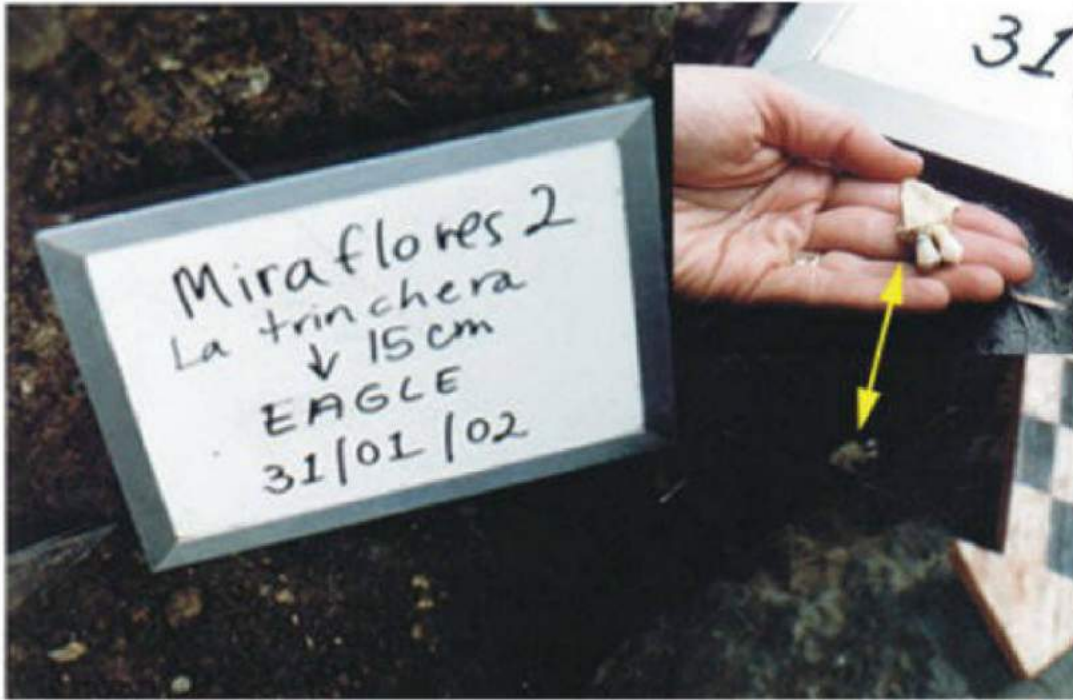 Miraflores 2
La trinchera
↓ 15 cm
EAGLE
31/01/02
31